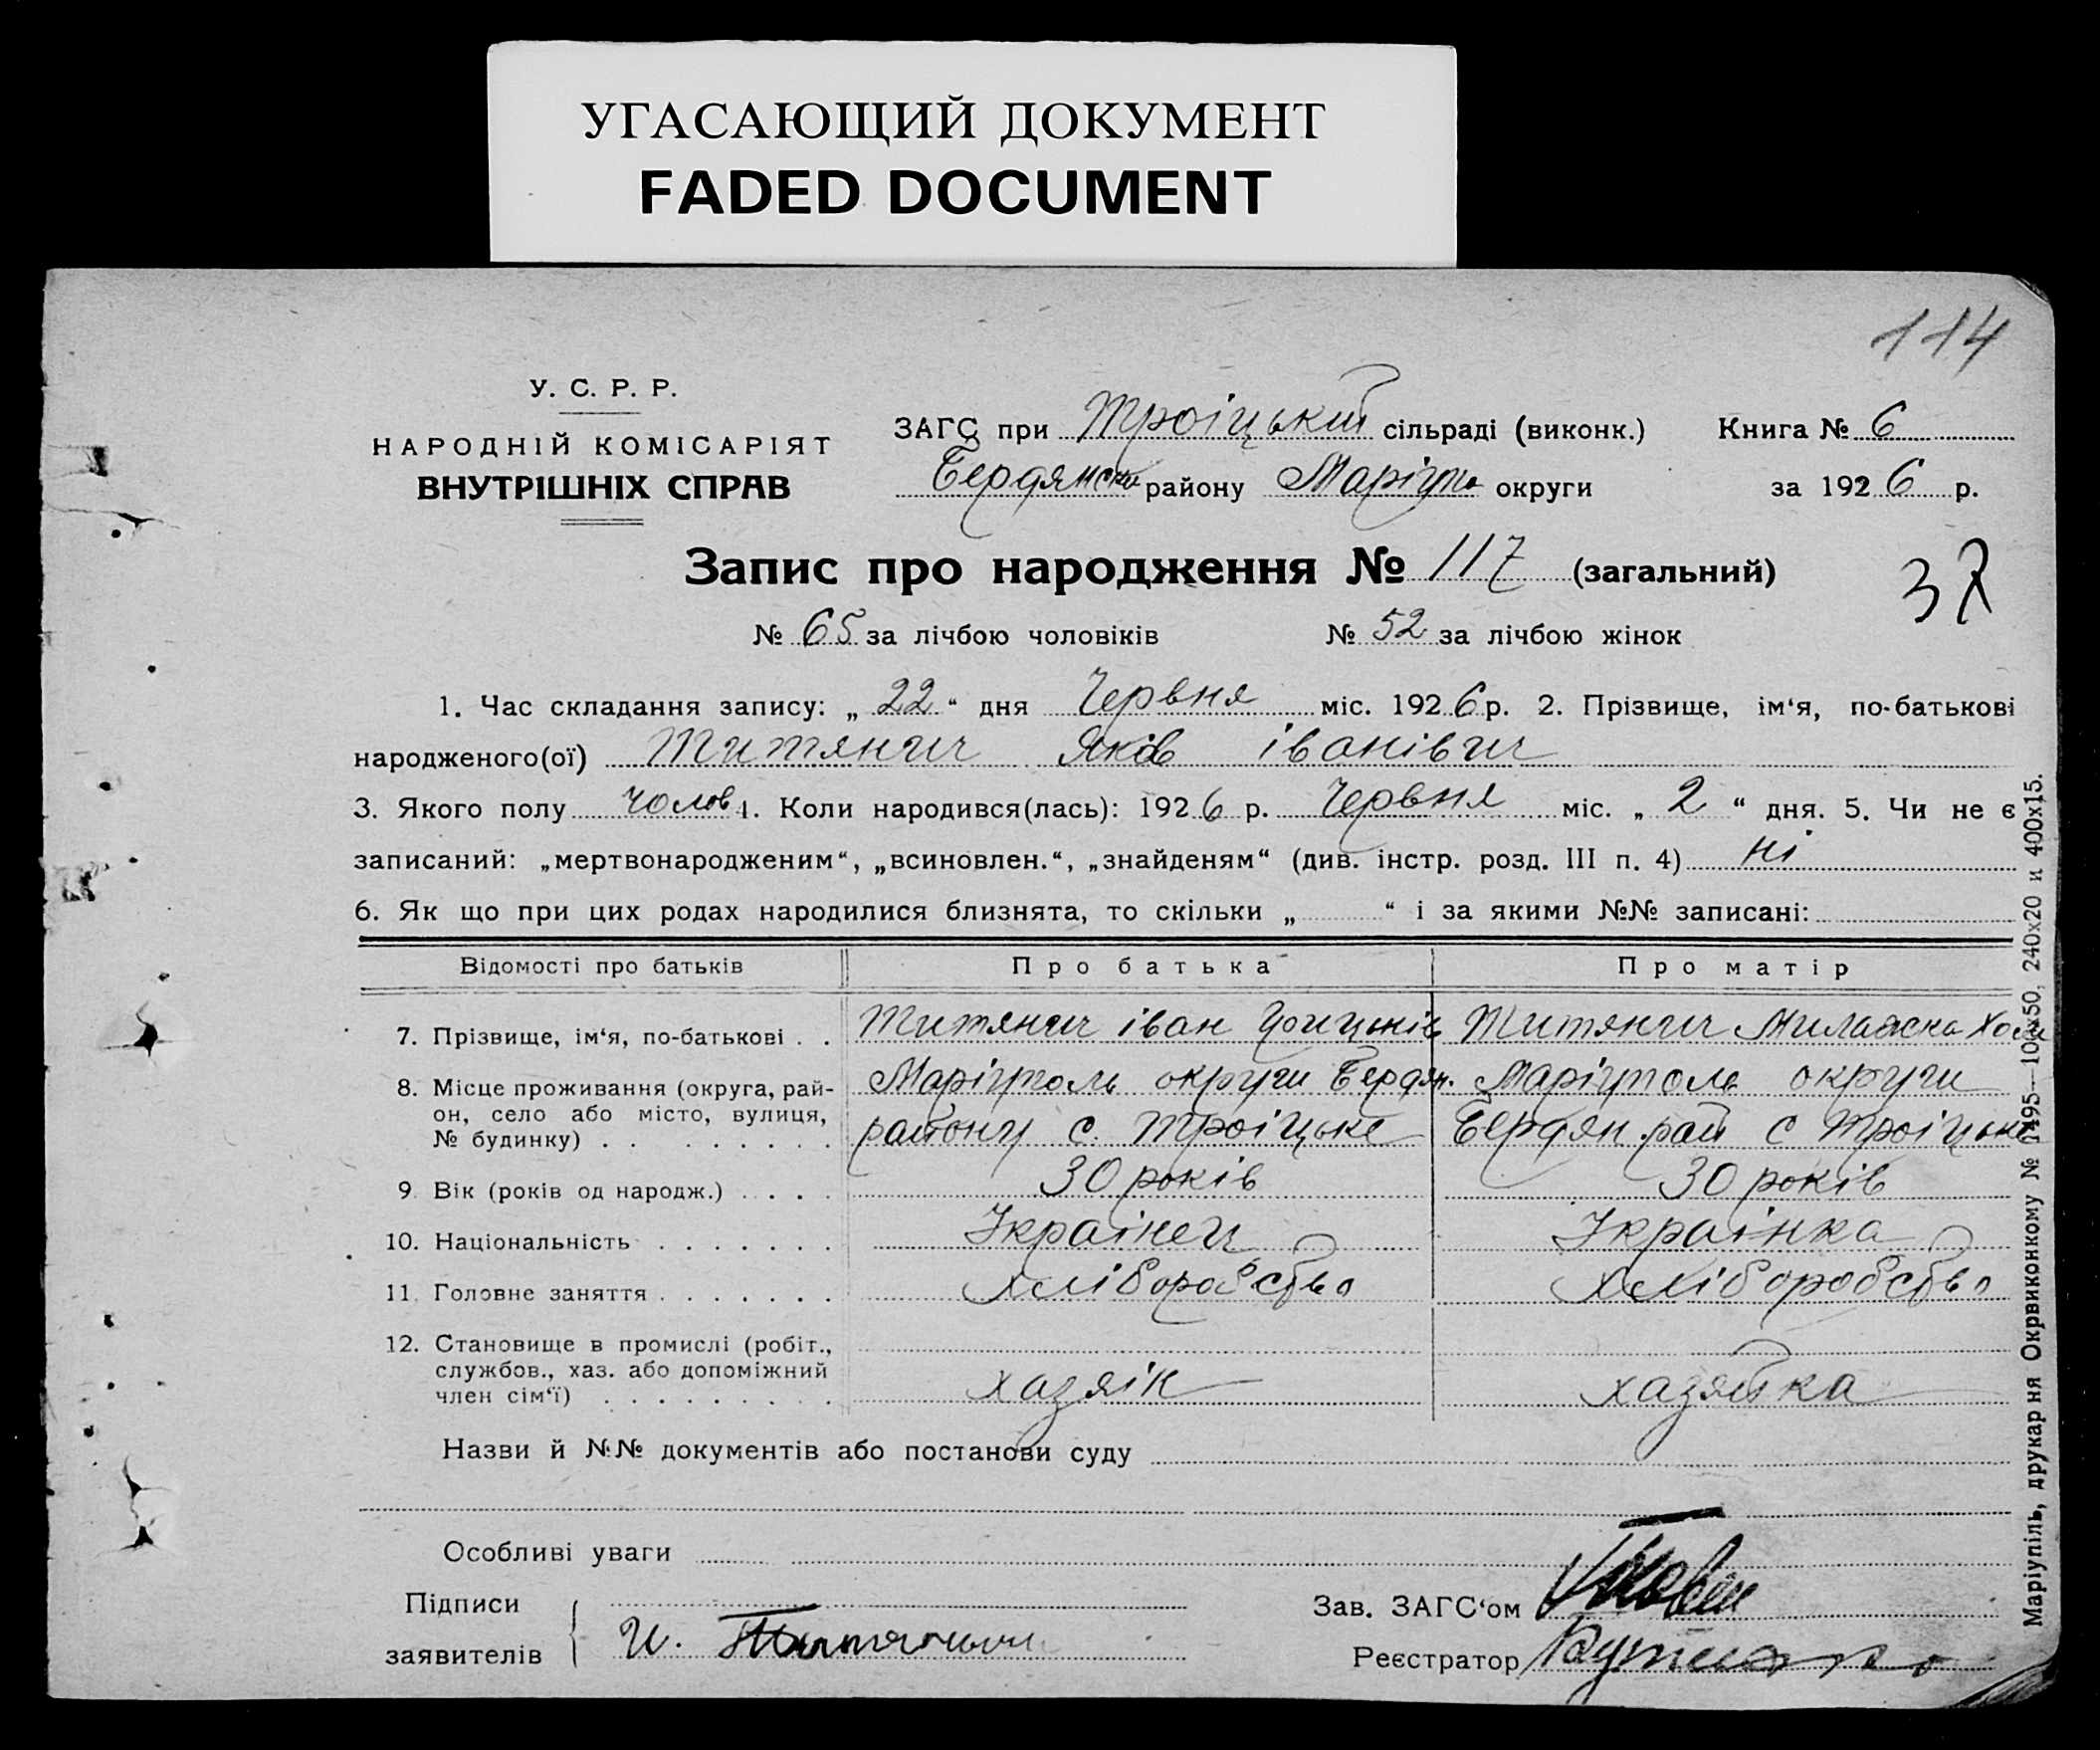 УГАСАЮЩИЙ ДОКУМЕНТ
FADED DOCUMENT
114
У. С. Р. Р.
НАРОДНІЙ КОМІСАРІЯТ
ВНУТРІШНІХ СПРАВ
ЗАГС при Троіцькій сільраді (виконк.) Книга № 6
Бердянськ району Маріуп округи за 1926 р.
Запис про народження № 117 (загальний)
37
№ 65 за лічбою чоловіків № 52 за лічбою жінок
1. Час складання запису: „ 22 “ дня Червня міс. 1926 р. 2. Прізвище, ім‘я, по-батькові
народженого(ої) Титянич Яків іванівич
3. Якого полу чолов 4. Коли народився(лась): 1926 р. Червня міс. „ 2 “ дня. 5. Чи не є
записаний: „мертвонародженим“, „всиновлен.“, „знайденям“ (див. інстр. розд. III п. 4) ні
6. Як що при цих родах народилися близнята, то скільки „ “ і за якими №№ записані:
Відомості про батьків Про батька Про матір
7. Прізвище, ім‘я, по-батькові . . Титянич іван Титянич
8. Місце проживання (округа, рай- Маріуполь округи Бердян. Маріуполь округи
он, село або місто, вулиця, районy с. Троіцьке Бердян рай с Троіцьке
№ будинку) . . . . . . . . .
9. Вік (років од народж.) . . . . 30 років 30 років
10. Національність . . . . . . . Украінец Украінка
11. Головне заняття . . . . . . . хліборобство хліборобство
12. Становище в промислі (робіт.,
службов., хаз. або допоміжний хазяін хазяйка
член сім‘ї) . . . . . . . . .
Назви й №№ документів або постанови суду
Особливі уваги
Підписи
заявителів И. Титянич
Зав. ЗАГС‘ом
Реєстратор
Маріупіль, друкарня Окрвиконкому № 1495—100х50, 240х20 и 400х15.